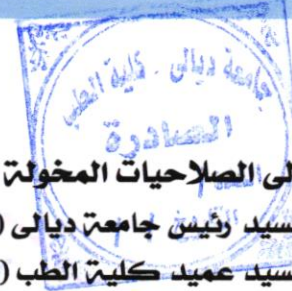 جامعة ديالى - كلية الطب
الصادرة
لى الصلاحيات المخولة
سيد رئيس جامعة ديالى (
سيد عميد كلية الطب (